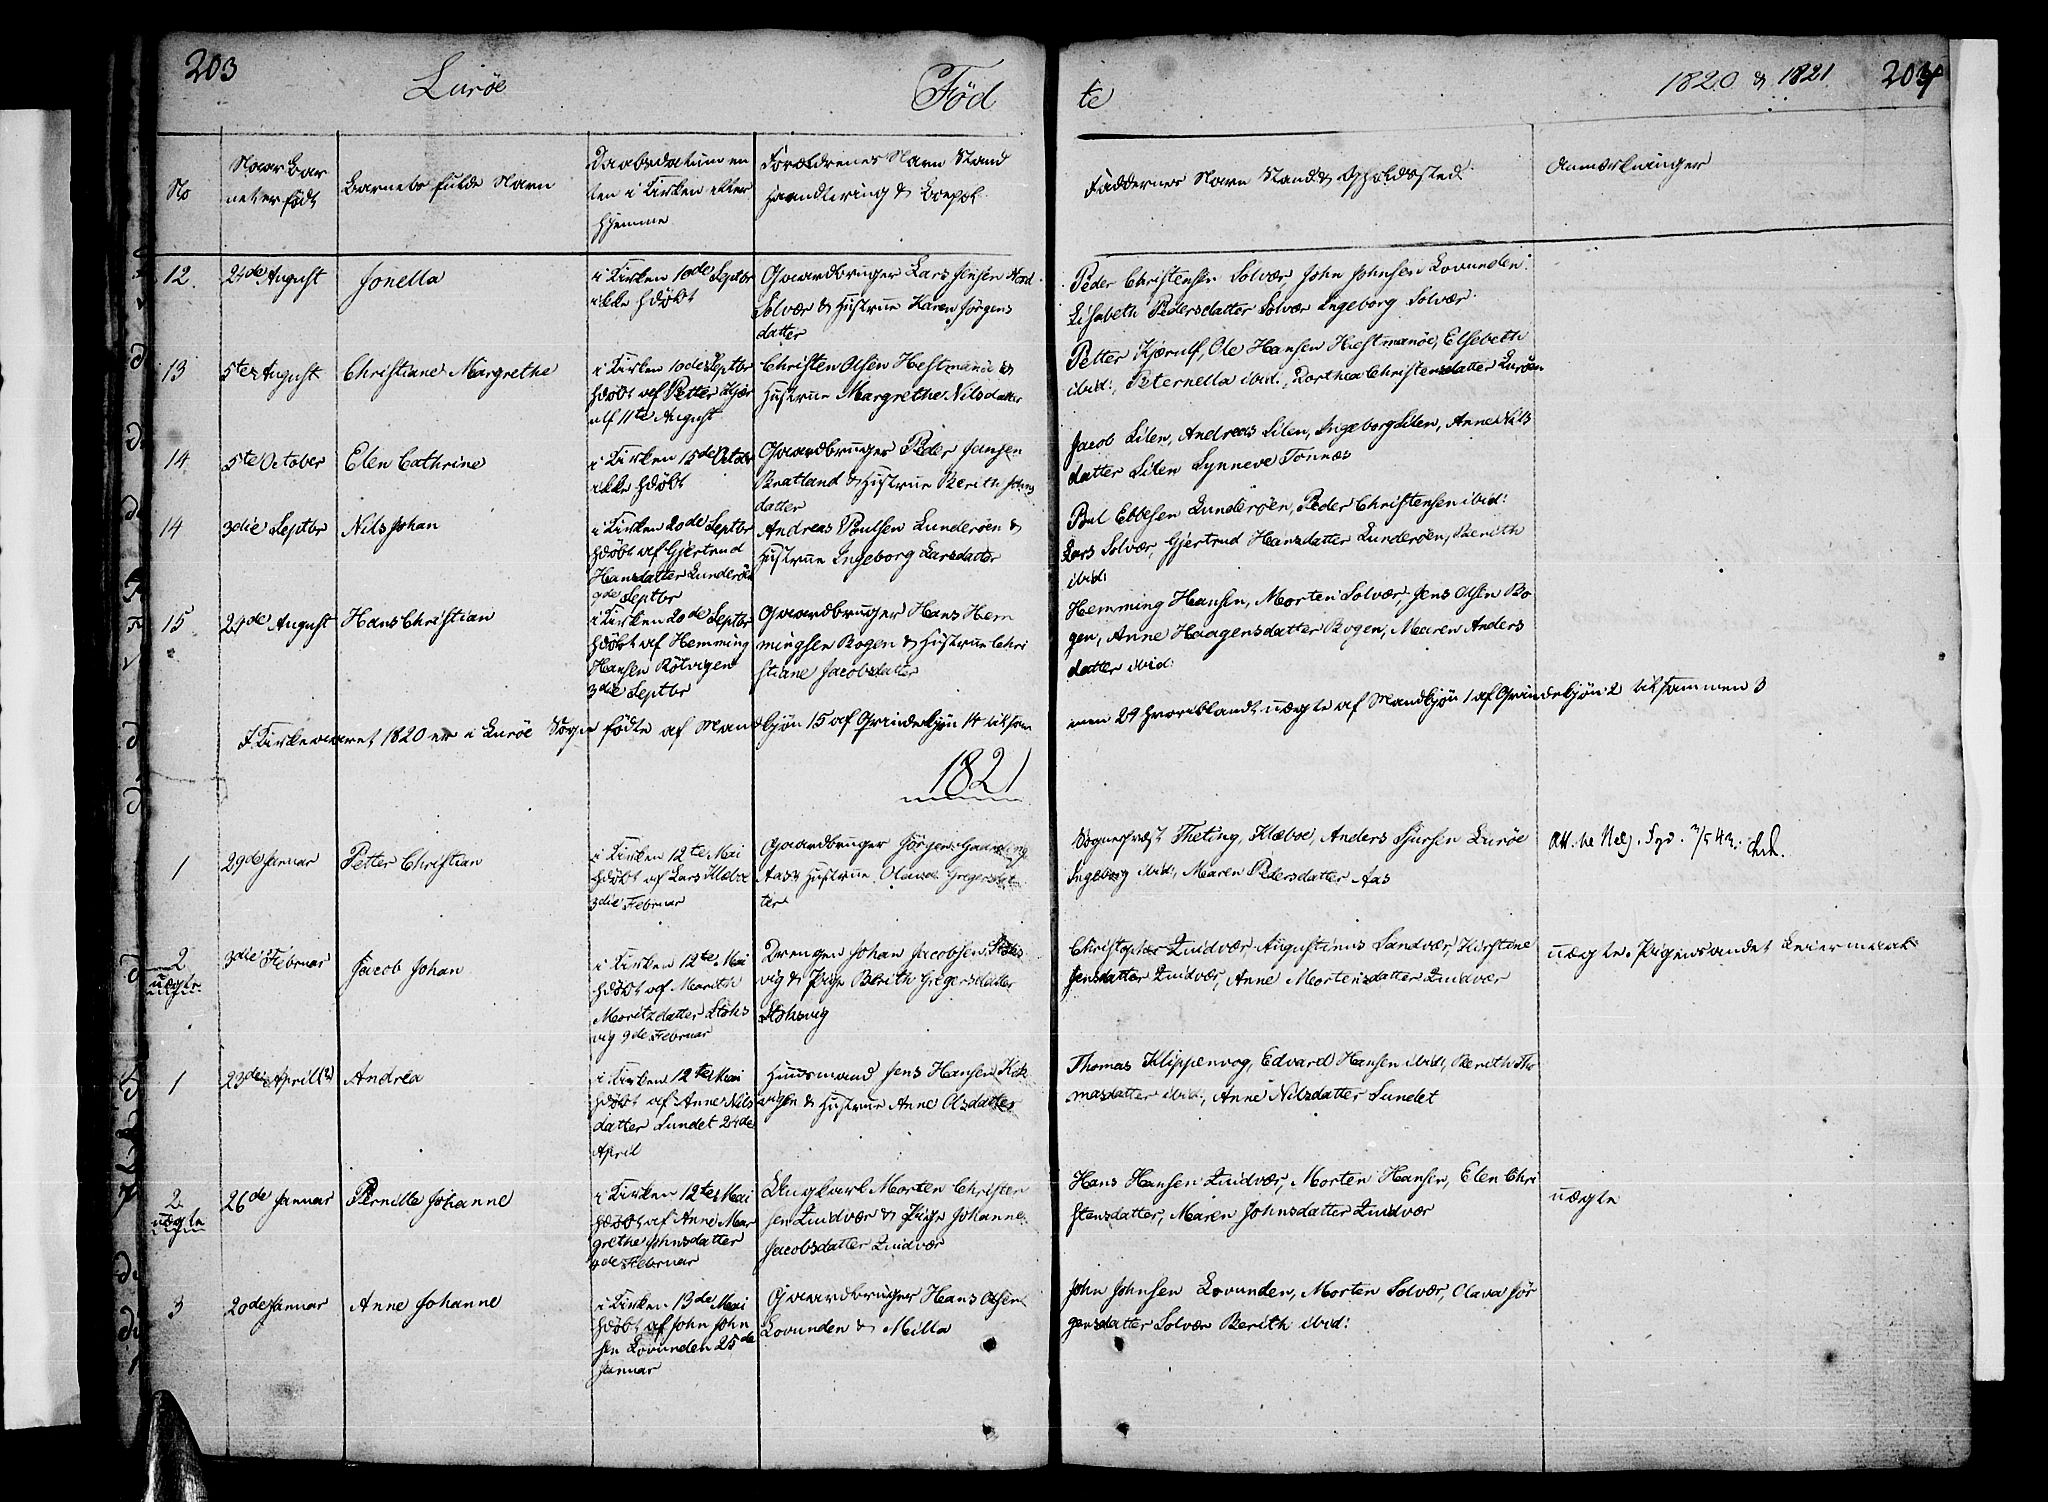 203
Lurøe
Fød
te
1820 & 1821
204
No
Naar Bar
net er født
Barnets fulde Navn
Daabsdatum en
ten i Kirken eller
hjemme
Forældrenes Navn Stand
Haandtering & Boepæl
Faddernes Navn Stand & Opholdssted
Anmærkninger
12.
24de August
Jonella
i Kirken 10de Septbr
ikke hdøbt
Gaardbruger Lars Jensen Nord
Solvær & Hustrue Karen Jørgens
datter
Peder Christensen Solvær, John Johnsen Lovunden
Lisabeth Pedersdatter Solvær Ingeborg Solvær
13
5te August
Christiane Margrethe
i Kirken 10de Septbr
hdøbt af Petter Kjær
ulf 11te August
Christen Olsen Hestmanøe &
Hustrue Margrethe Nilsdatter
Petter Kjærulf, Ole Hansen Hestmanøe, Elsebeth
ibid:, Peternella ibid:, Dorthea Christensdatter Lurøen
14
5te October
Elen Cathrine
i Kirken 15de Octobr
ikke hdøbt
Gaardbruger Peder Jansen
Bratland & Hustrue Berith Jens
datter
Jacob Silen, Andreas Silen, Ingeborg Silen, Anne Nils
datter Silen Synneve Tonnes
14
3die Septbr
Nils Johan
i Kirken 20de Septbr
hdøbt af Gjertrud
Hansdatter Lunderøen
9de Septbr
Andreas Poulsen Lunderøen &
Hustrue Ingeborg Larsdatter
Poul Ebbesen Lunderøen, Peder Christensen ibid:
Lars Solvær, Gjertrud Hansdatter Lunderøen, Berith
ibid:
15
24de August
Hans Christian
i Kirken 20de Septbr
hdøbt af Hemming
Hansen Rötvigen
3die Septbr
Gaardbruger Hans Hem
mingsen Bogen & Hustrue Chri
stiane Jacobsdatter
Hemming Hansen, Morten Solvær, Jens Olsen Bo
gen, Anne Haagensdatter Bogen, Maren Anders
datter ibid:
I Kirkeaaret 1820 er i Lurøe Sogn fødte af Mandkjøn 15 af Qvindekjøn 14 tilsam
men 29 hvoriblandt uægte af Mandkjøn 1 af Qvindekjøn 2 tilsammen 3
1821
1
29de Januar
Petter Christian
i Kirken 12te Mai
hdøbt af Lars Klæboe
3die Februar
Gaardbruger Jørgen
Aas & Hustrue Olava Gregersdat
ter
Sognepræst Theting, Klæboe, Anders Sjursen Lurøe
Ingeborg ibid:, Maren Pedersdatter Aas
Att. 3/5 43.
2
uægte
3die Februar
Jacob Johan
i Kirken 12te Mai
hdøbt af Marith
Moritzdatter Stoks
vig 9de Februar
Drengen Johan Jacobsen Stoks
vig & Pige Berith Gregersdatter
Stoksvig
Christopher Quidvær, Augustinus Sandvær, Kirstine
Jensdatter Quidvær, Anne Mortensdatter Quidvær
uægte. Pigens andet Leiermaal
1
23de April
Andrea
i Kirken 12te Mai
hdøbt af Anne Nils
datter Sundet 24de
April
Huusmand Jens Hansen Kok
vigen & Hustrue Anne Olsdatter
Thomas Klippenvog, Edvard Hansen ibid:, Berith Tho
masdatter ibid:, Anne Nilsdatter Sundet
2
uægte
26de Januar
Pernille Johanne
i Kirken 12te Mai
hdøbt af Anne Mar
grethe Johnsdatter
4de Februar
Ungkarl Morten Christen
sen Quidvær & Pige Johanne
Jacobsdatter Quidvær
Hans Hansen Quidvær, Morten Hansen, Elen Chri
stensdatter, Maren Johnsdatter Quidvær
uægte
3
20de Januar
Anne Johanne
i Kirken 13de Mai
hdøbt af John John
sen Lovunden 25de
Januar
Gaardbruger Hans Olsen
Lovunden & Milla
John Johnsen Lovunden, Morten Solvær, Olava Jør
gensdatter Solvær Berith ibid: